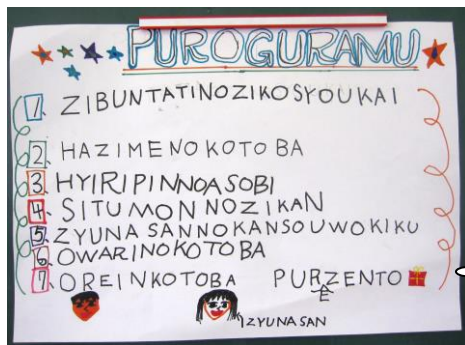 PUROGURAMU
1. ZIBUNTATINOZIKOSYOUKAI
2. HAZIMENOKOTOBA
3. HYIRIPINNOASOBI
4. SITUMONNOZIKAN
5. ZYUNASANNOKANSOUWOKIKU
6. OWARINOKOTOBA
7. OREINKOTOBA PUREZENTO
ZYUNASAN